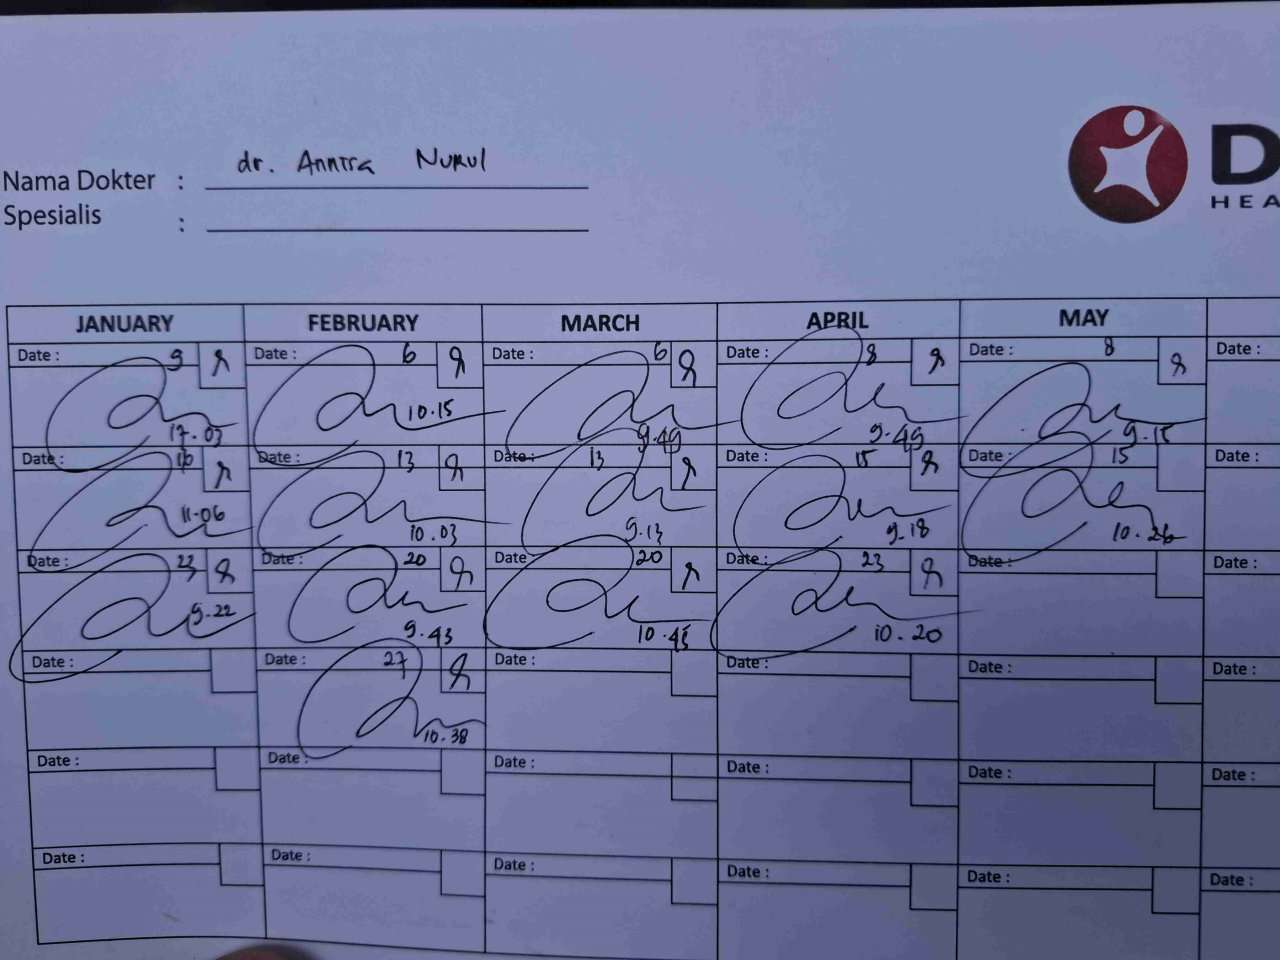 dr. Annisa Nurul
Nama Dokter :
Spesialis :
D
HEA
JANUARY FEBRUARY MARCH APRIL MAY
Date : 9 Date : 6 Date : 6 Date : 8 Date : 8 Date :
17.03 10.15 9.49 9.49 9.15
Date : 16 Date : 13 Date : 13 Date : 15 Date : 15 Date :
11.06 10.03 9.13 9.18 10.26
Date : 23 Date : 20 Date 20 Date : 23 Date : Date :
9.22 9.43 10.45 10.20
Date : Date : 27 Date : Date : Date : Date :
10.38
Date : Date : Date : Date : Date : Date :
Date : Date : Date : Date : Date : Date :